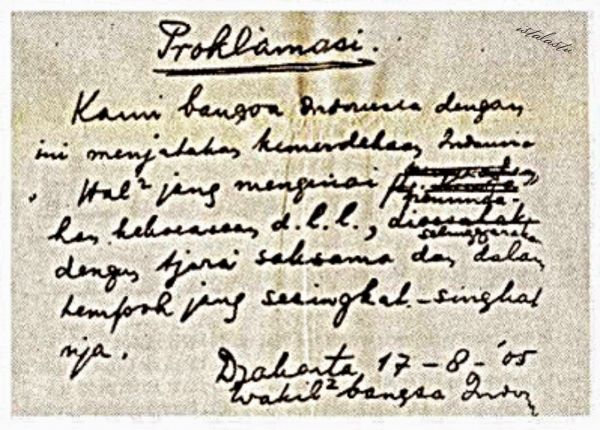 istalastu
Proklamasi.
Kami bangsa Indonesia dengan
ini menjatakan kemerdekaan Indonesia
Hal² jang mengenai
peminda-
han kekoeasaan d.l.l., dioesahak
selenggaraka
dengan tjara saksama dan dalam
tempoh jang sesingkat-singkat
nja.
Djakarta, 17-8-'05
Wakil² bangsa Indon